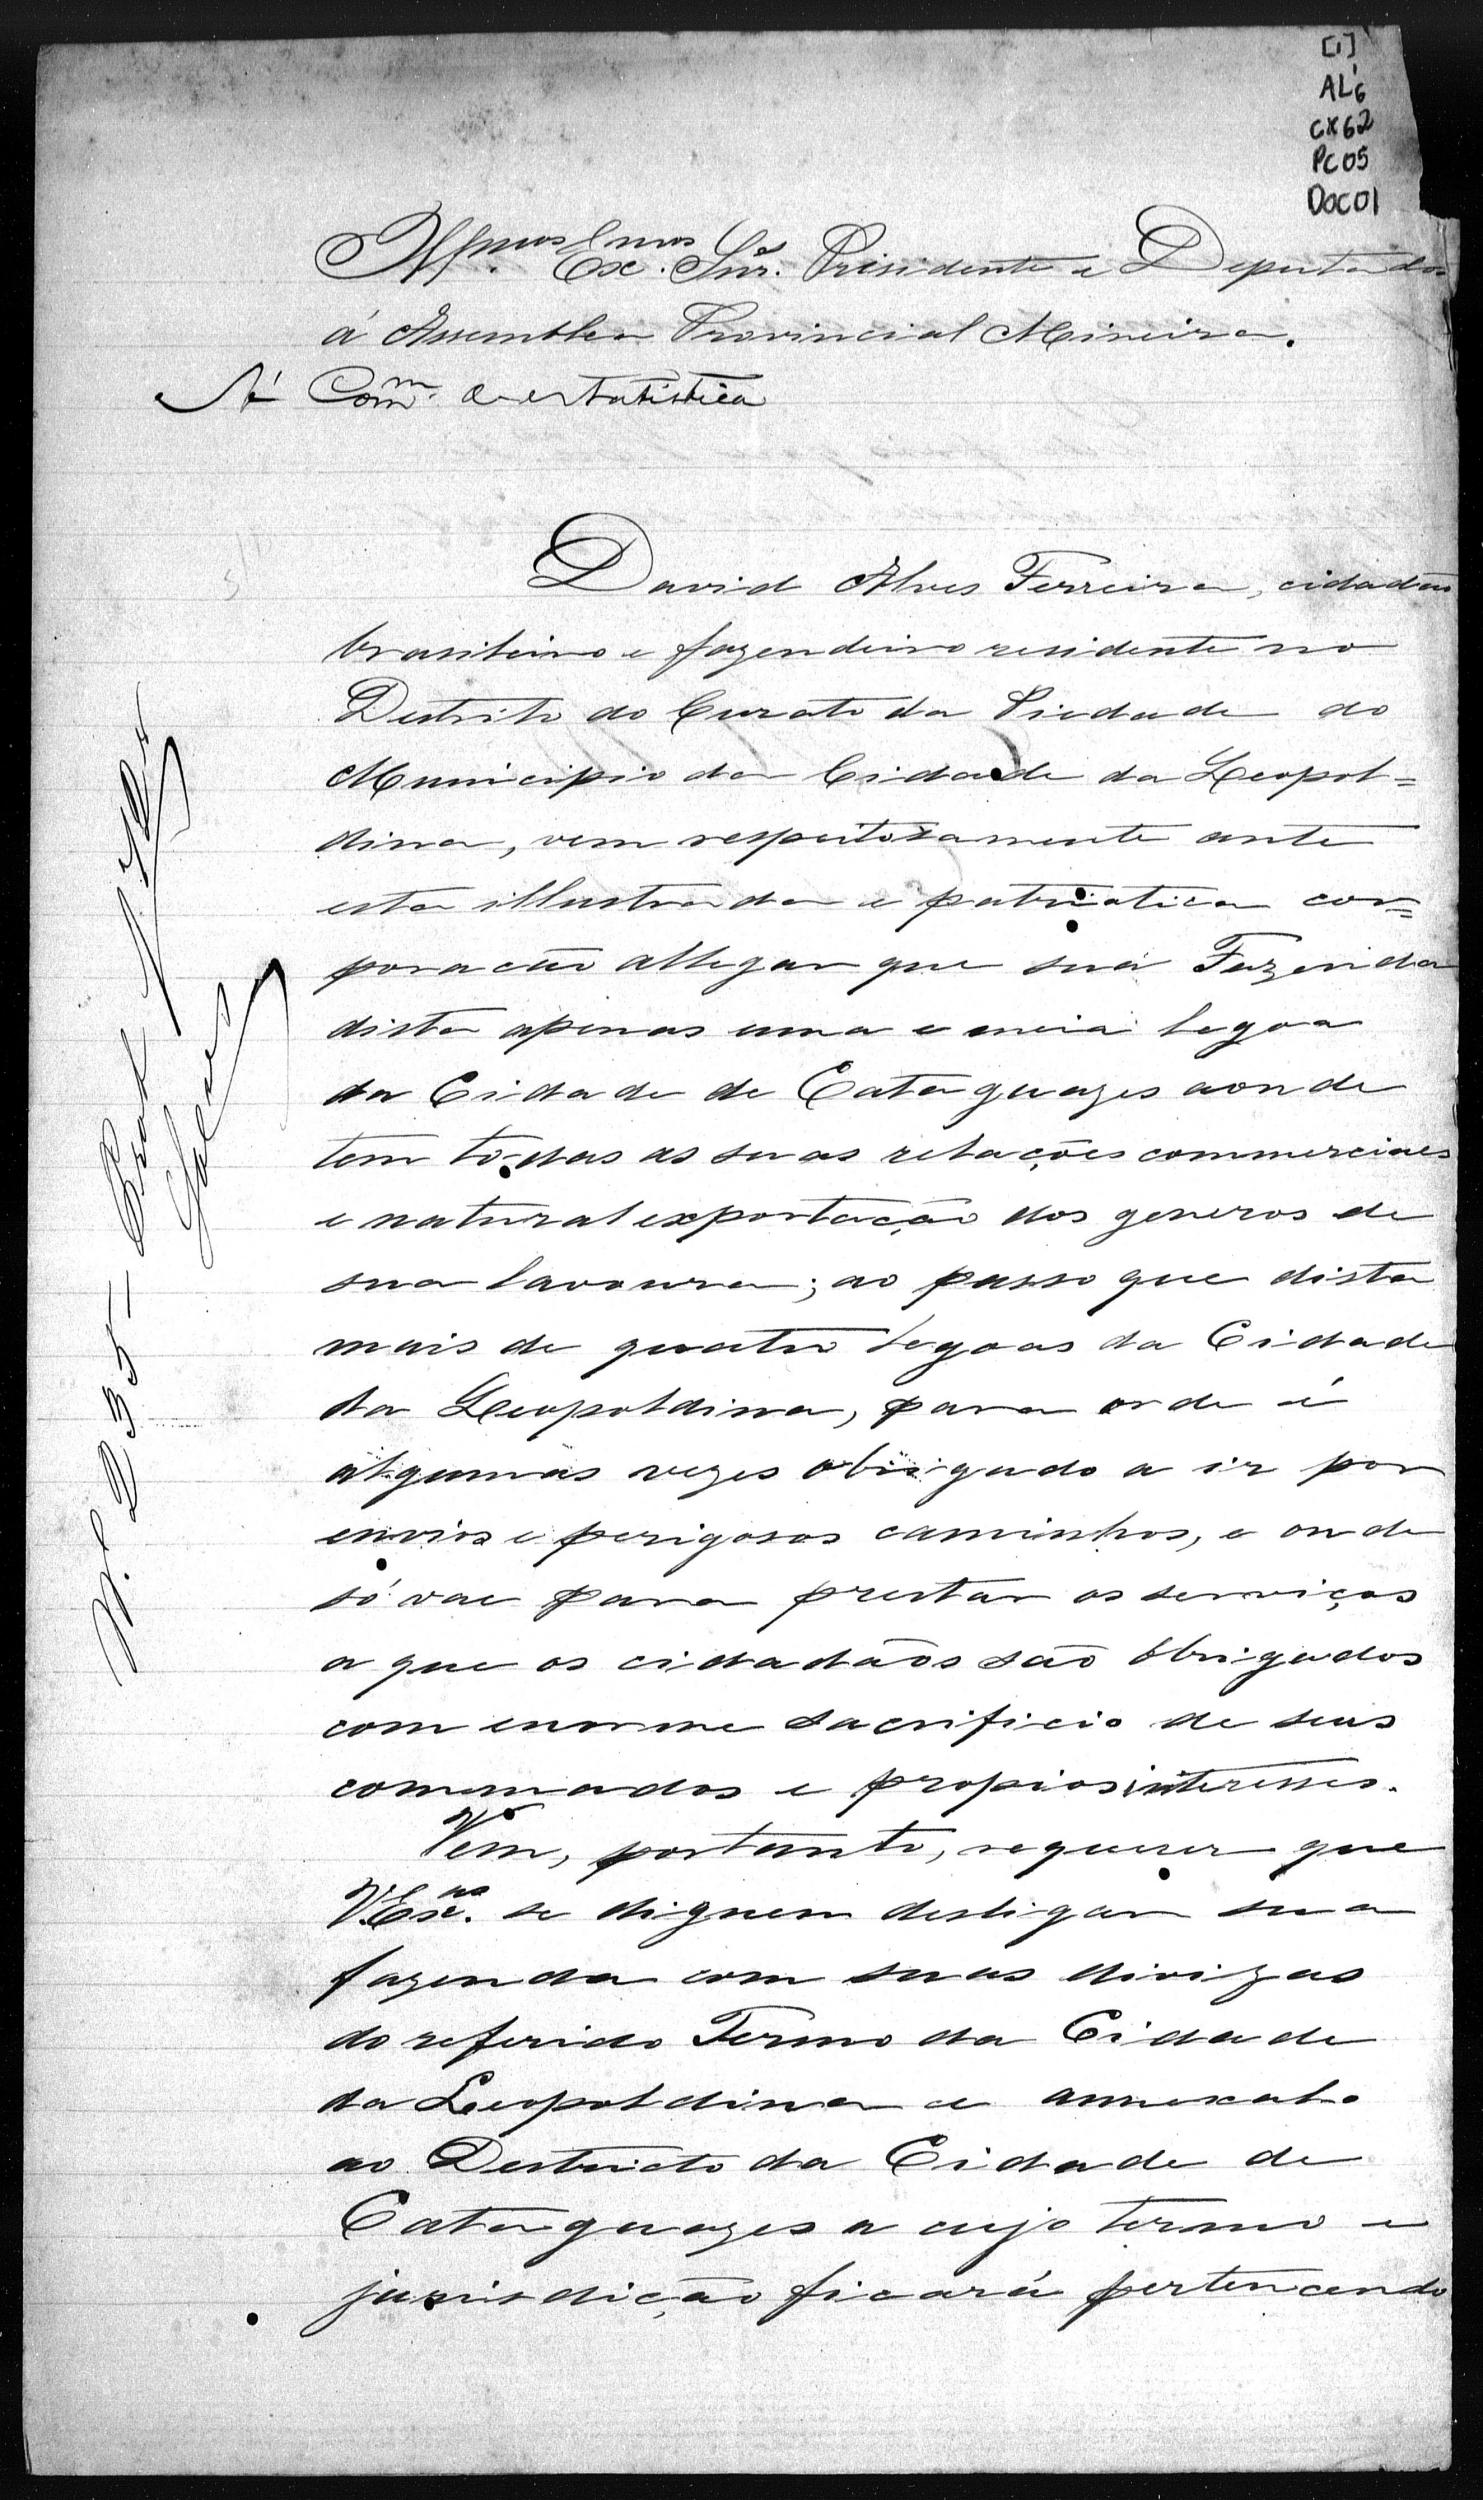 [1]
AL6
CX62
PC05
DOC01
Illmos. Exmos. Snr. Presidente e Deputados
á Assemblea Provincial Mineira.
Á Comm. de estatistica
David Alves Ferreira, cidadão
brasileiro e fazendeiro residente no
Destrito do Curato da Piedade do
Municipio da Cidade da Leopol=
dina, vem respeitosamente ante
esta illustrada e patriotica cor=
poracão allegar que sua Fazenda
dista apenas uma e meia legoa
da Cidade de Cataguazes aonde
tem todas as suas relações commerciaes
e natural exportação dos generos de
sua lavoura; ao passo que dista
mais de quatro legoas da Cidade
da Leopoldina, para onde é
algumas vezes obrigado a ir por
invios e perigosos caminhos, e onde
só vae para prestar os serviços
a que os cidadãos são obrigados
com enorme sacrificio de seus
commodos e propios interesses.
Vem, portanto, requerer que
V.Exas. se dignem desligar sua
fazenda com suas divizas
do referido Termo da Cidade
da Leopoldina e annexal-o
ao Destricto da Cidade de
Cataguazes a cujo termo e
jurisdicção ficará pertencendo
N. 235-